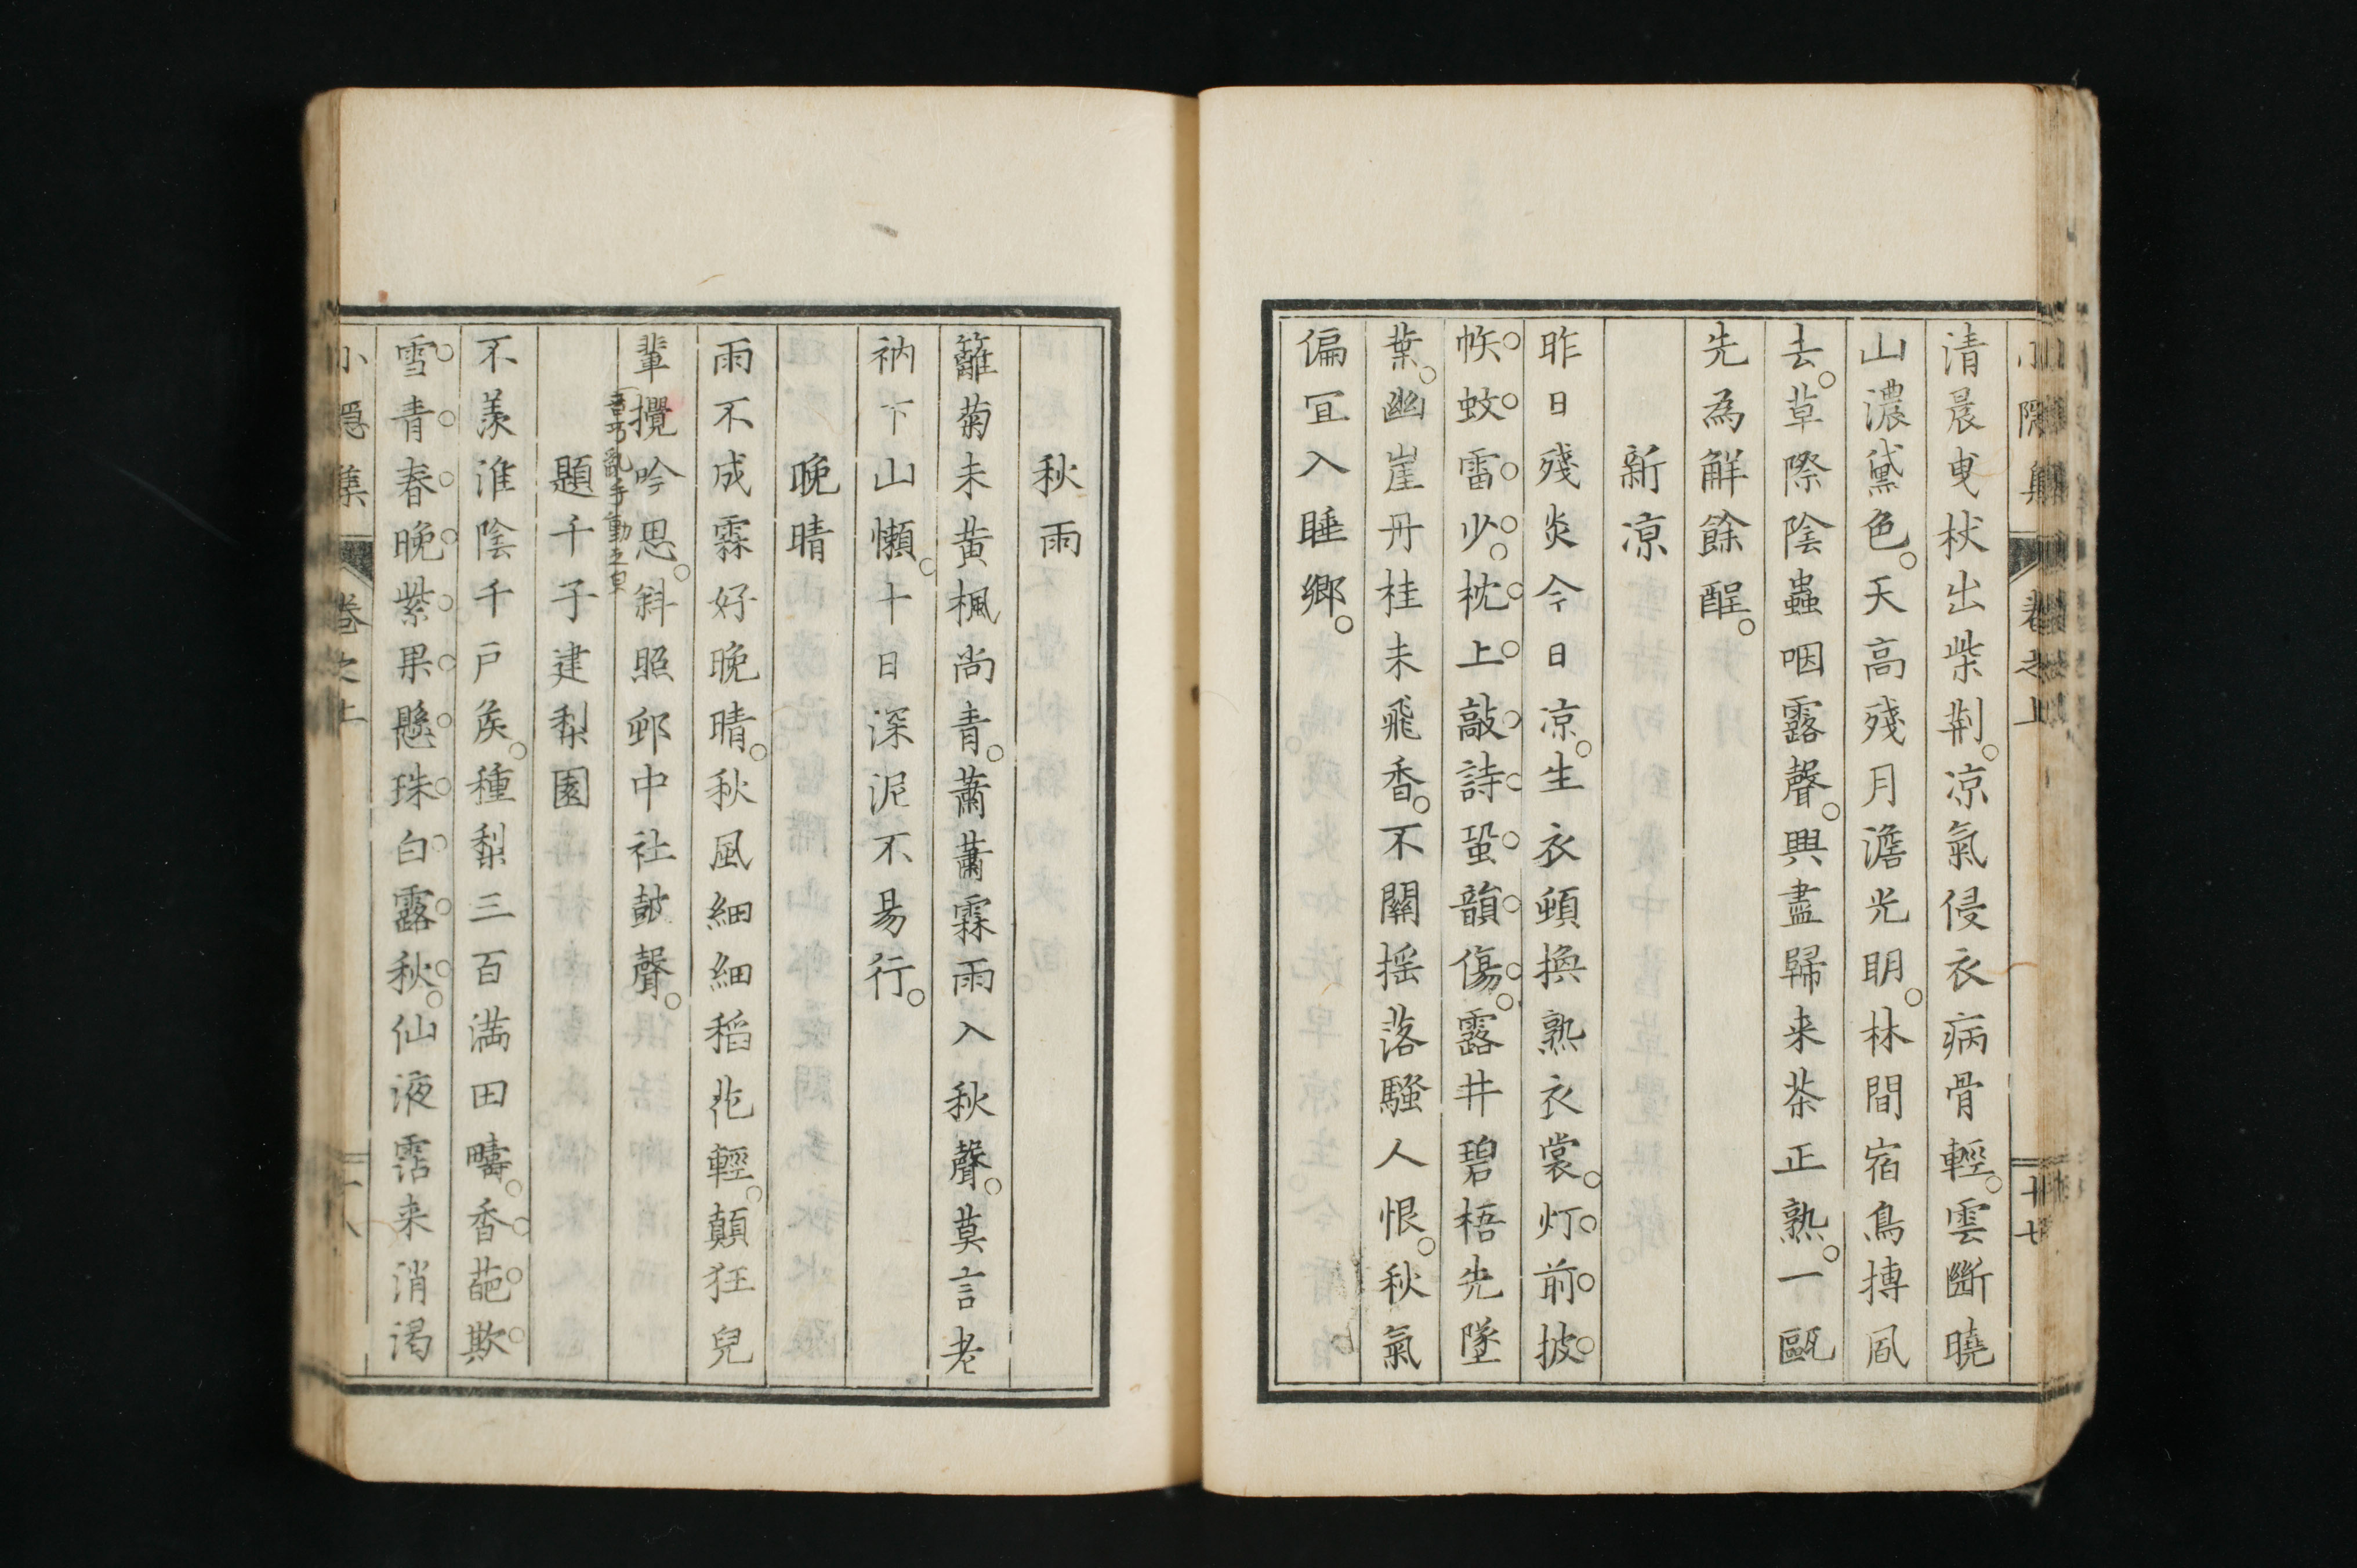 小隱集 卷之上 十七
清晨曳杖出柴荆。凉氣侵衣病骨輕。雲斷曉
山濃黛色。天高殘月澹光明。林間宿鳥搏風
去。草際陰蟲咽露聲。興盡歸来茶正熟。一甌
先為解餘酲。
新凉
昨日殘炎今日凉。生衣頓換熟衣裳。灯前披
帙蚊雷少。枕上敲詩蛩韻傷。露井碧梧先墜
葉。幽崖丹桂未飛香。不關揺落騷人恨。秋氣
偏宜入睡鄉。
秋雨
籬菊未黄楓尚青。蕭蕭霖雨入秋聲。莫言老
衲下山懶。十日深泥不易行。
晩晴
雨不成霖好晚晴。秋風細細稻花輕。顛狂兒
輩攪吟思。斜照邨中社鼓聲。
亂手動之皃
題千子建梨園
不羨淮陰千戶矦。種梨三百満田疇。香葩欺
雪青春晚。紫果懸珠白露秋。仙液霑来消渇
小隱集 卷之上 十八